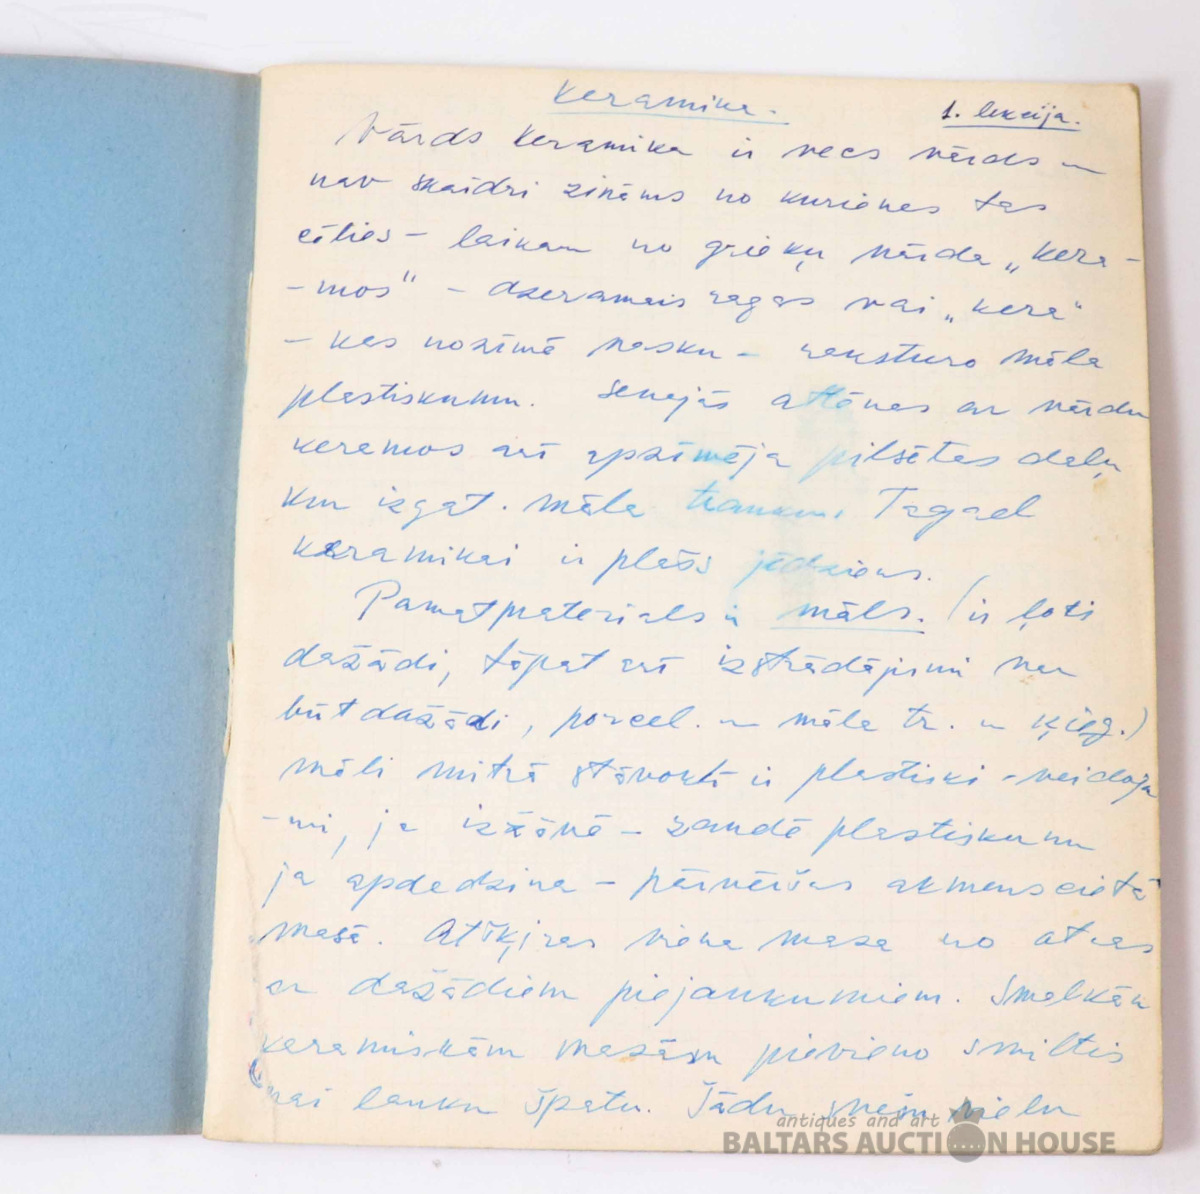 Keramika.
1. lekcija.
Vārds keramika ir vecs vārds un
nav skaidri zināms no kurienes tas
cēlies – laikam no grieķu vārda „kera-
-mos" – dzeramais rags vai „kera"
– kas nozīmē vasku – raksturo māla
plastiskumu. Senajās Atēnas ar vārdu
keramos arī apzīmēja pilsētas daļu
kur izgat. māla traukus. Tagad
keramikai ir plašs jēdziens.
Pamatmateriāls ir māls. (ir ļoti
dažādi, tāpat arī izstrādājumi var
būt dažādi, porcel. un māla tr. un ķieģ.)
māli mitrā stāvoklī ir plastiski – veidoja
-mi, ja izžāvē – zaudē plastiskumu
ja apdedzina – pārvēršas akmenscietā
masā. Atšķiras viena masa no otras
ar dažādiem piejaukumiem. Smalkām
keramiskām masām pievieno smiltis
vai lauku špatu. Šādu vielu
antiques and art
BALTARS AUCTION HOUSE